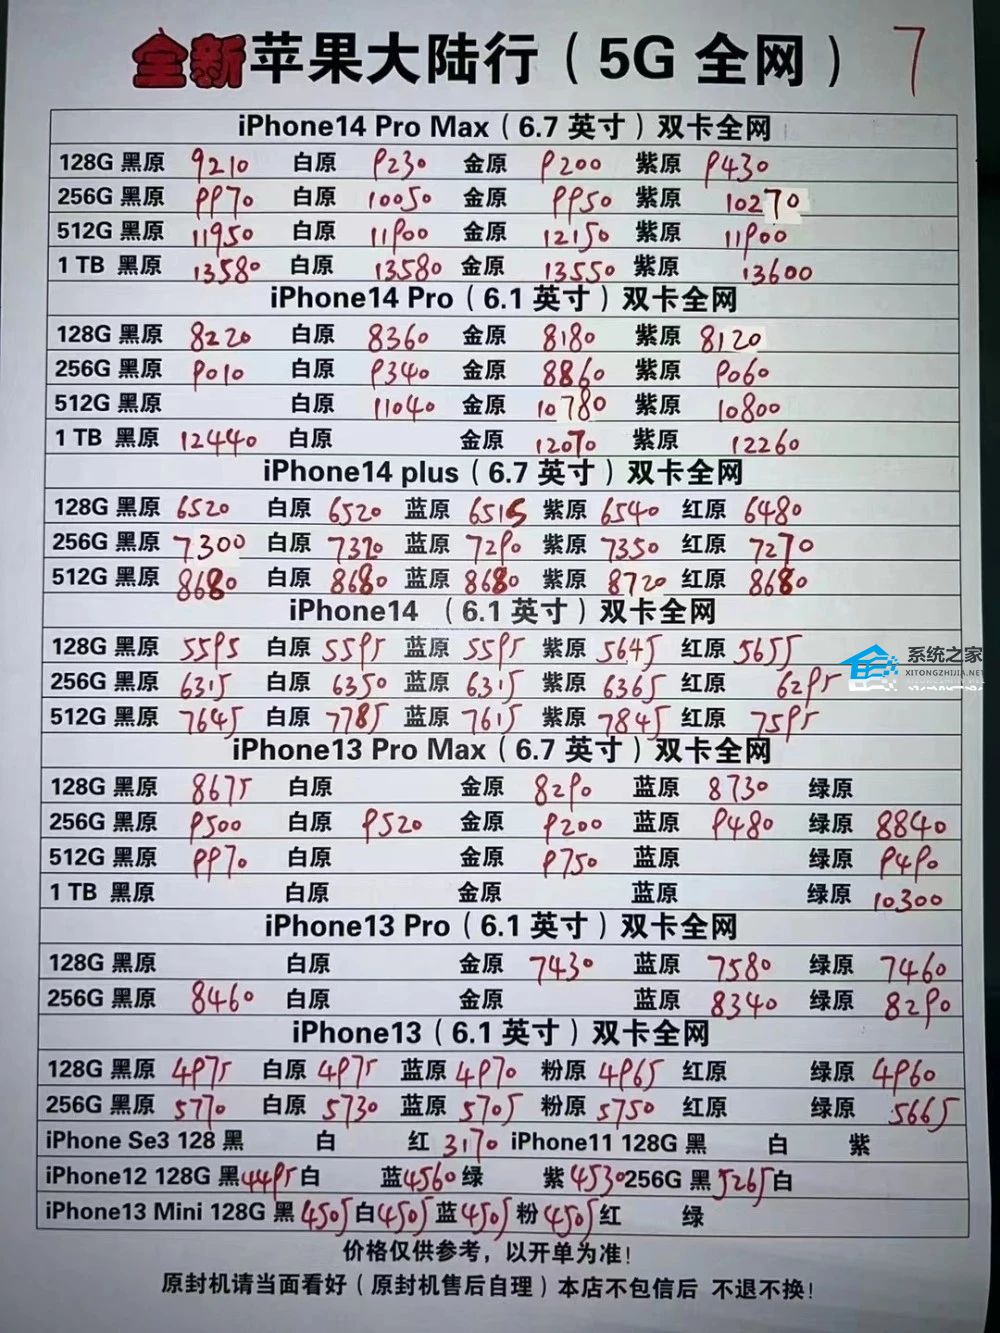 全新苹果大陆行（5G 全网） 7
iPhone14 Pro Max（6.7 英寸）双卡全网
128G 黑原 9210 白原 9230 金原 9200 紫原 9430
256G 黑原 9970 白原 10050 金原 9950 紫原 10270
512G 黑原 11950 白原 11900 金原 12150 紫原 11900
1 TB 黑原 13580 白原 13580 金原 13550 紫原 13600
iPhone14 Pro（6.1 英寸）双卡全网
128G 黑原 8220 白原 8360 金原 8180 紫原 8120
256G 黑原 9010 白原 9340 金原 8860 紫原 9060
512G 黑原 白原 11040 金原 10780 紫原 10800
1 TB 黑原 12440 白原 金原 12070 紫原 12260
iPhone14 plus（6.7 英寸）双卡全网
128G 黑原 6520 白原 6520 蓝原 6515 紫原 6540 红原 6480
256G 黑原 7300 白原 7370 蓝原 7290 紫原 7350 红原 7270
512G 黑原 8680 白原 8680 蓝原 8680 紫原 8720 红原 8680
iPhone14 （6.1 英寸）双卡全网
128G 黑原 5595 白原 5595 蓝原 5595 紫原 5645 红原 5655
256G 黑原 6315 白原 6350 蓝原 6315 紫原 6365 红原 6295
512G 黑原 7645 白原 7785 蓝原 7615 紫原 7845 红原 7595
系统之家
XITONGZHIJIA.NET
iPhone13 Pro Max（6.7 英寸）双卡全网
128G 黑原 8675 白原 金原 8290 蓝原 8730 绿原
256G 黑原 9500 白原 9520 金原 9200 蓝原 9480 绿原 8840
512G 黑原 9970 白原 金原 9750 蓝原 绿原 9490
1 TB 黑原 白原 金原 蓝原 绿原 10300
iPhone13 Pro（6.1 英寸）双卡全网
128G 黑原 白原 金原 7430 蓝原 7580 绿原 7460
256G 黑原 8460 白原 金原 蓝原 8340 绿原 8290
iPhone13（6.1 英寸）双卡全网
128G 黑原 4975 白原 4975 蓝原 4970 粉原 4965 红原 绿原 4960
256G 黑原 5770 白原 5730 蓝原 5705 粉原 5750 红原 绿原 5665
iPhone Se3 128 黑 白 红 3170 iPhone11 128G 黑 白 紫
iPhone12 128G 黑 4495 白 蓝 4560 绿 紫 4530 256G 黑 5265 白
iPhone13 Mini 128G 黑 4505 白 4505 蓝 4505 粉 4505 红 绿
价格仅供参考，以开单为准！
原封机请当面看好（原封机售后自理）本店不包信后 不退不换！